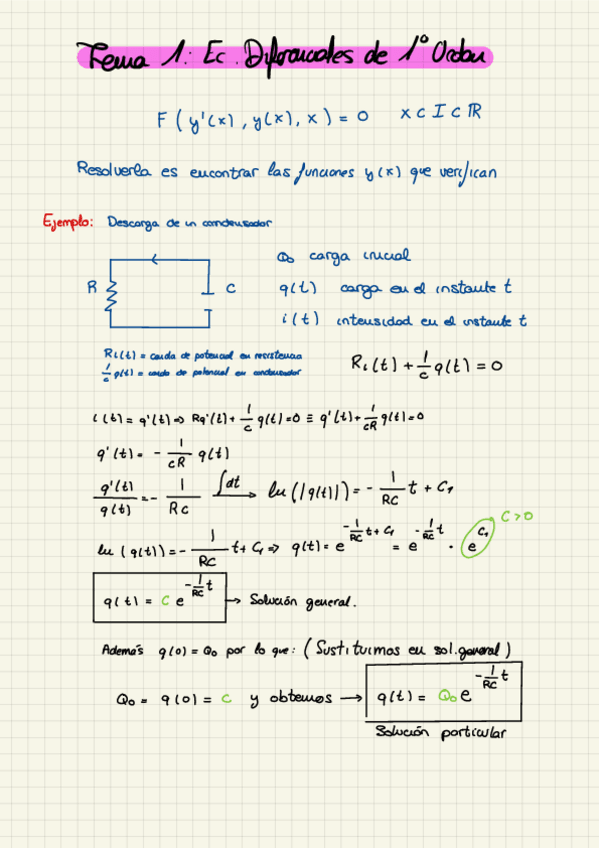 Tema 1: Ec. Diferenciales de 1º Orden
F ( y'(x) , y(x), x ) = 0 x ⊂ I ⊂ ℝ
Resolverla es encontrar las funciones y(x) que verifican
Ejemplo: Descarga de un condensador
Q₀ carga inicial
R C q(t) carga en el instante t
i(t) intensidad en el instante t
Ri(t) = caída de potencial en resistencia
1/c q(t) = caída de potencial en condensador
Ri(t) + 1/c q(t) = 0
i(t) = q'(t) ⇒ Rq'(t) + 1/c q(t) = 0 ≡ q'(t) + 1/cR q(t) = 0
q'(t) = - 1/cR q(t)
q'(t)/q(t) = - 1/Rc ∫dt → ln(|q(t)|) = - 1/RC t + C₁
ln(q(t)) = - 1/RC t + C₁ ⇒ q(t) = e^(-1/RC t + C₁) = e^(-1/RC t) · e^(C₁) C > 0
q(t) = C e^(-1/RC t) → Solución general.
Además q(0) = Q₀ por lo que: (Sustituimos en sol. general)
Q₀ = q(0) = C y obtemos → q(t) = Q₀ e^(-1/RC t)
Solución particular